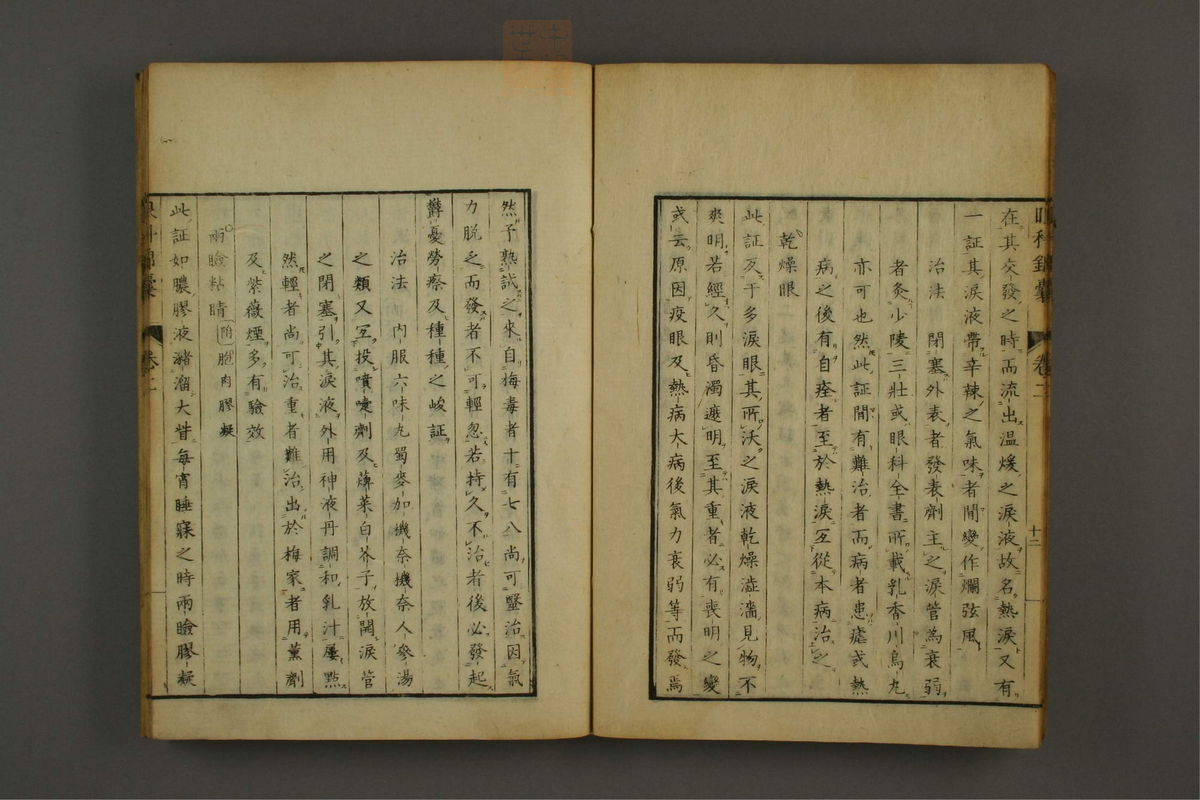 眼科錦囊 卷二 十二
在其交發之時而流出温煖之淚液故名熱淚又有
一証其淚液帶辛辣之氣味者間變作爛弦風
治法 閉塞外表者發表劑主之淚管為衰弱
者灸少陵三壯或眼科全書所載乳香川烏丸
亦可也然此証間有難治者而病者患瘧或熱
病之後有自痊者至於熱淚宜從本病治之
乾燥眼
此証反于多淚眼其所沃之淚液乾燥澁濇見物不
爽明若經久則昏濁遮明至其重者必有喪明之變
或云原因疫眼及熱病大病後氣力衰弱等而發焉
然予熟試之來自梅毒者十有七八尚可毉治因氣
力脫乏而發者不可輕忽若持久不治者後必發起
欝憂勞瘵及種種之峻証
治法 內服六味丸蜀麥加機奈機奈人參湯
之類又宜投噴嚏劑及蓽茉白芥子放開淚管
之閉塞引其淚液外用神液丹調和乳汁屢點
然輕者尚可治重者難治出於梅家者用薰劑
及紫薇煙多有驗效
兩瞼粘睛 附 胞肉膠凝
此証如膿膠液瀦溜大眥每宵睡寐之時兩瞼膠凝
眼科錦囊 卷二